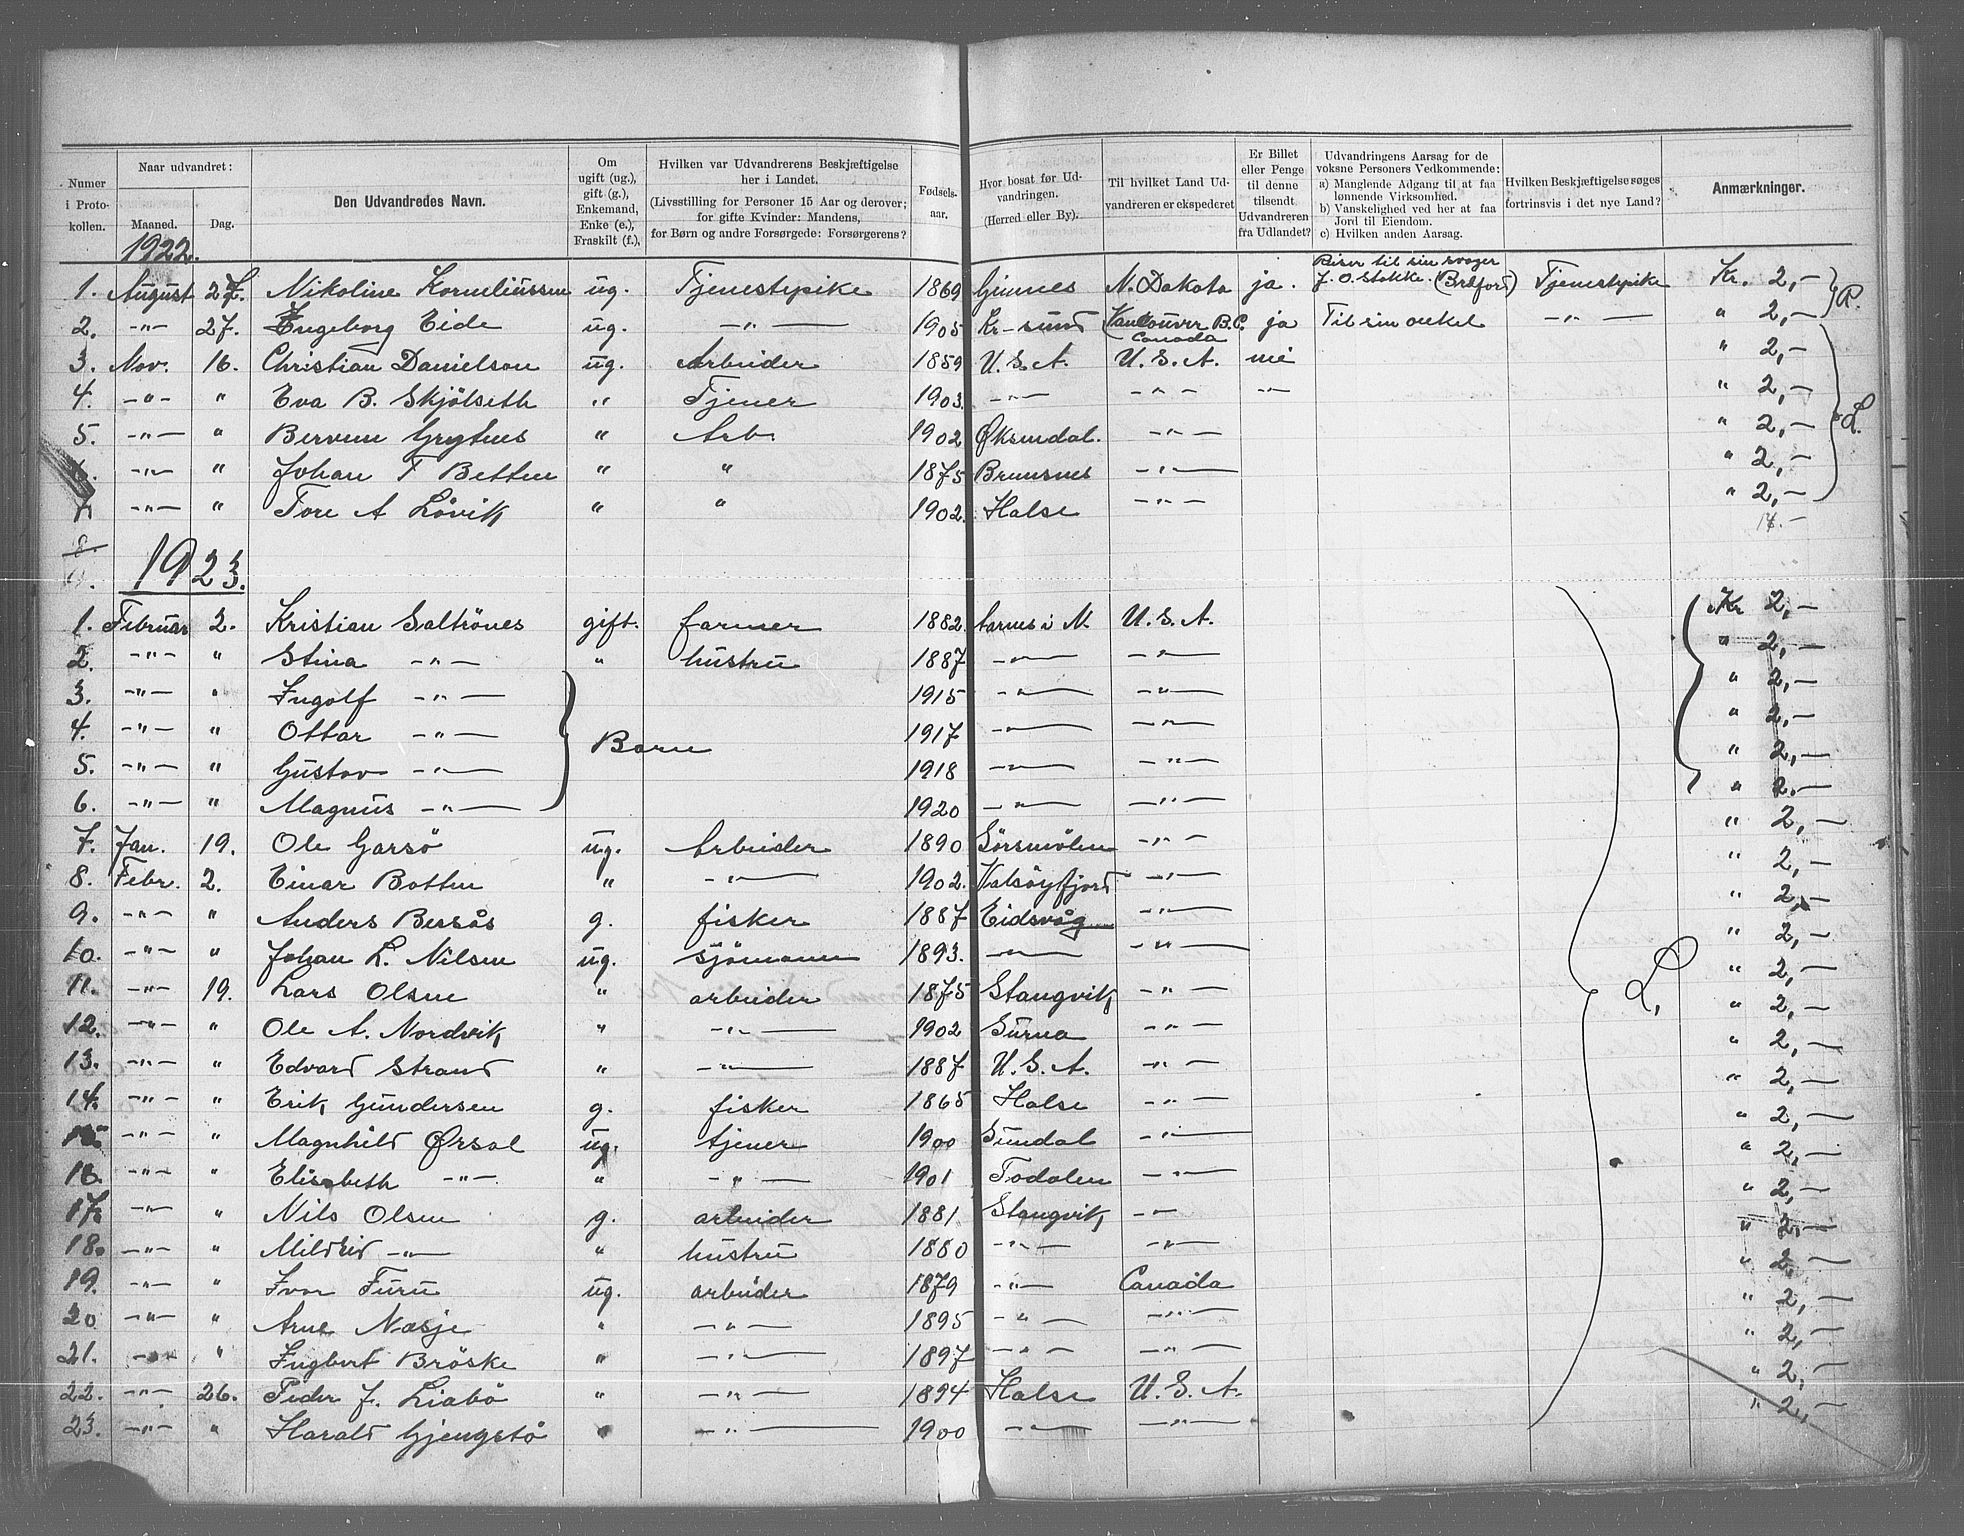 Numer i Protokollen. | Naar udvandret: Maaned. Dag. | Den Udvandredes Navn. | Om ugift (ug.), gift (g.), Enkemand, Enke (e.), Fraskilt (f.), | Hvilken var Udvandrerens Beskjæftigelse her i Landet. (Livsstilling for Personer 15 Aar og derover; for gifte Kvinder: Mandens, for Børn og andre Forsørgede: Forsørgerens? | Fødselsaar. | Hvor bosat før Udvandringen. (Herred eller By). | Til hvilket Land Udvandreren er ekspederet | Er Billet eller Penge til denne tilsendt Udvandreren fra Udlandet? | Udvandringens Aarsag for de voksne Personers Vedkommende: a) Manglende Adgang til at faa lønnende Virksomhed. b) Vanskelighed ved her at faa Jord til Eiendom. c) Hvilken anden Aarsag. | Hvilken Beskjæftigelse søges fortrinsvis i det nye Land? | Anmærkninger.
1922.
1. August 27. Nikoline Korneliussen ug. Tjenestepike 1869 Gimnes N. Dakota ja. Reiser til sin svoger J. O. Stokke. (Bedford) Tjenestepike Kr. 2,-
2. -"- 27. Engeborg Eide ug. -"- 1905 Kr-sund Vancouver B.C. Canada ja Til sin onkel -"- " 2,- R.
3. Nov. 16. Christian Danielson ug. Arbeider 1859 U.S.A. U.S.A. nei " 2,-
4. -"- " Eva B. Skjölseth " Tjener 1903. -"- -"- -"- " 2,-
5. -"- " Grythus " Arb. 1902 Øksendal. -"- " 2,- L.
6. -"- " Johan T Betten " " 1875 Bremsnes -"- " 2,-
7. -"- " Tore A Lövik " " 1902. Halse -"- " 2,-
14.-
8.
9. 1923.
1. Februar 2. Kristian Saltrönes gift. farmer 1882. i N. U.S.A. Kr 2,-
2. -"- " Stina -"- " hustru 1887 -"- -"- " 2,-
3. -"- " Ingolf -"- 1915 -"- -"- " 2,-
4. -"- " Ottar -"- Barn 1917 -"- -"- " 2,-
5. -"- " Gustav -"- 1918 -"- -"- " 2,-
6. -"- " Magnus -"- 1920 -"- -"- " 2,-
7. Jan. 19. Ole Garsö ug. Arbeider 1890 Sörsmölen -"- " 2,-
8. Febr. 2. Einar Botten " -"- 1902. Valsöyfjord -"- " 2,-
9. -"- " Anders Bersås g. fisker 1887 Eidsvåg -"- " 2,-
10. -"- " Johan L. Nilsen ug. Sjömann 1893. -"- -"- " 2,-
11. -"- 19. Lars Olsen " arbeider 1875 Stangvik -"- " 2,- L,
12. -"- " Ole A. Nordvik " -"- 1902 Surna -"- " 2,-
13. -"- " Edvard Strand " -"- 1887 U.S.A. -"- " 2,-
14. -"- " Erik Gundersen g. fisker 1865 Halse -"- " 2,-
15. -"- " Magnhild Ørsal ug. tjener 1900 Sundal -"- " 2,-
16. -"- " Elisabeth -"- " -"- 1901 Todalen -"- " 2,-
17. -"- " Nils Olsen g. arbeider 1881 Stangvik -"- " 2,-
18. -"- " Mildrid -"- " hustru 1880 -"- -"- " 2,-
19. -"- " Ivar Furu ug. arbeider 1879 -"- Canada " 2,-
20 -"- " Arne Næsje " -"- 1895 -"- -"- " 2,-
21. -"- " Ingbert Bröske " -"- 1897 -"- -"- " 2,-
22. -"- 26. Peder J. Liabö " -"- 1894 Halse U.S.A. " 2,-
23. -"- " Harald Gjengstö " -"- 1900 -"- -"- " 2,-